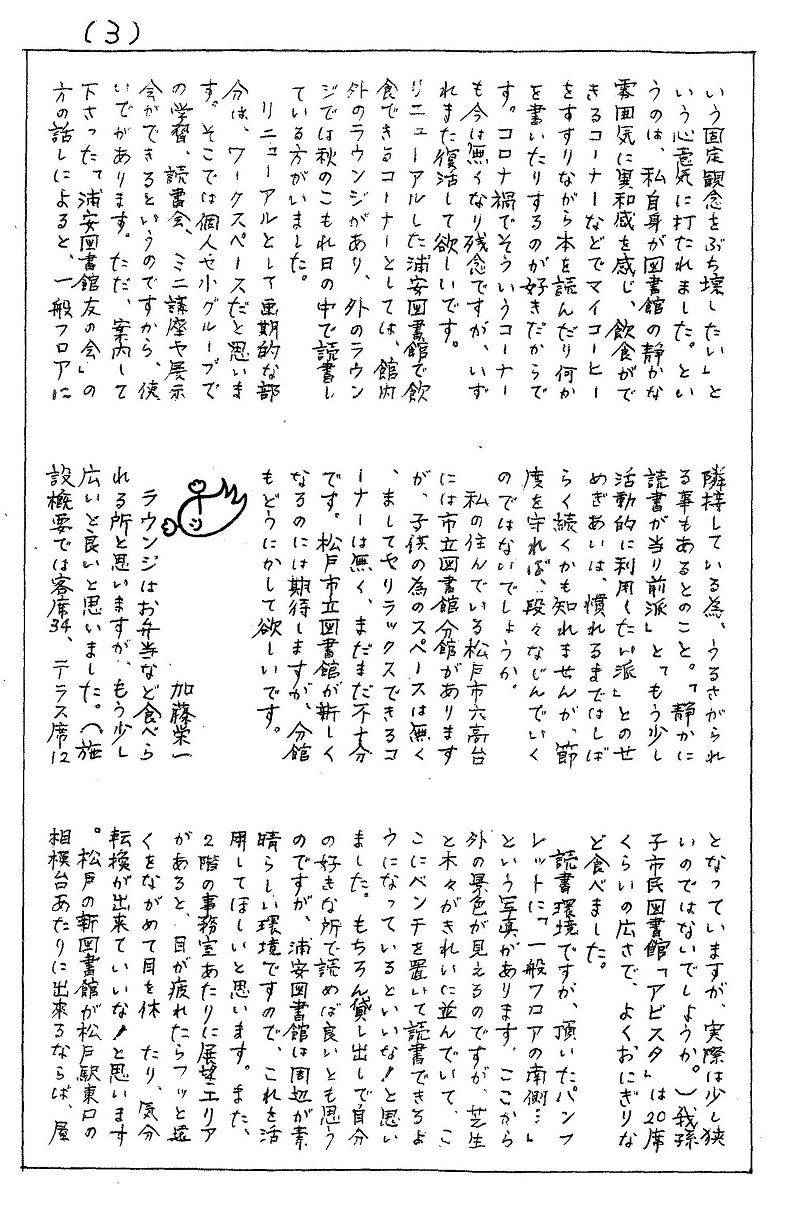 (3)
いう固定観念をぶち壊したい」と
いう心意気に打たれました。とい
うのは、私自身が図書館の静かな
雰囲気に異和感を感じ、飲食がで
きるコーナーなどでマイコーヒー
をすすりながら本を読んだり何か
を書いたりするのが好きだからで
す。コロナ禍でそういうコーナー
も今は無くなり残念ですが、いず
れまた復活して欲しいです。
リニューアルした浦安図書館で飲
食できるコーナーとしては、館内
外のラウンジがあり、外のラウン
ジでは秋のこもれ日の中で読書し
ている方がいました。
リニューアルとして画期的な部
分は、ワークスペースだと思いま
す。そこでは個人や小グループで
の学習、読書会、ミニ講座や展示
会ができるというのですから、使
いでがあります。ただ、案内して
下さった「浦安図書館友の会」の
方の話しによると、一般フロアに
隣接している為、うるさがられ
る事もあるとのこと。「静かに
読書が当り前派」と「もう少し
活動的に利用したい派」とのせ
めぎあいは、慣れるまではしば
らく続くかも知れませんが、節
度を守れば、段々なじんでいく
のではないでしょうか。
私の住んでいる松戸市六高台
には市立図書館分館があります
が、子供の為のスペースは無く
、ましてやリラックスできるコ
ーナーは無く、まだまだ不十分
です。松戸市立図書館が新しく
なるのには期待しますが、分館
もどうにかして欲しいです。
加藤栄一
ラウンジはお弁当など食べら
れる所と思いますが、もう少し
広いと良いと思いました。（施
設概要では客席34、テラス席12
となっていますが、実際は少し狭
いのではないでしょうか。）我孫
子市民図書館「アビスタ」は20席
くらいの広さで、よくおにぎりな
ど食べました。
読書環境ですが、頂いたパンフ
レットに「一般フロアの南側…」
という写真があります。ここから
外の景色が見えるのですが、芝生
と木々がきれいに並んでいて、こ
こにベンチを置いて読書できるよ
うになっているといいな！と思い
ました。もちろん貸し出しで自分
の好きな所で読めば良いとも思う
のですが、浦安図書館は周辺が素
晴らしい環境ですので、これを活
用してほしいと思います。また、
2階の事務室あたりに展望エリア
があると、目が疲れたらフッと遠
くをながめて目を休 たり、気分
転換が出来ていいな！と思います
。松戸の新図書館が松戸駅東口の
相模台あたりに出来るならば、屋